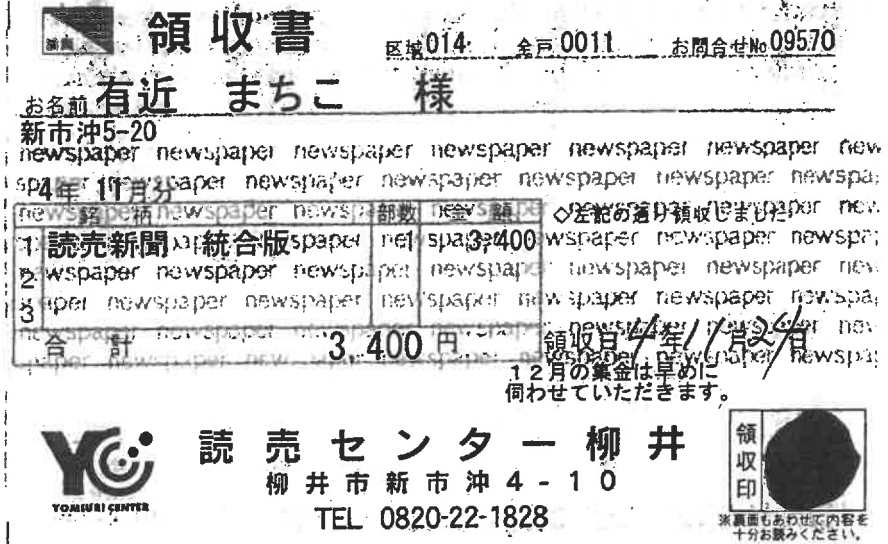 読売
領収書
区域014 全戸0011 お問合せNo09570
お名前 有近 まちこ 様
新市沖5-20
newspaper newspaper newspaper newspaper newspaper newspaper new
4年 11月分
銘柄 部数 金額 ◇左記の通り領収しました
1 読売新聞 統合版 1 3,400
2
3
合計 3,400円
領収日 4年11月24日
12月の集金は早めに
伺わせていただきます。
YC
YOMIURI CENTER
読売センター柳井
柳井市新市沖4-10
TEL 0820-22-1828
領収印
※裏面もあわせて内容を
十分お読みください。